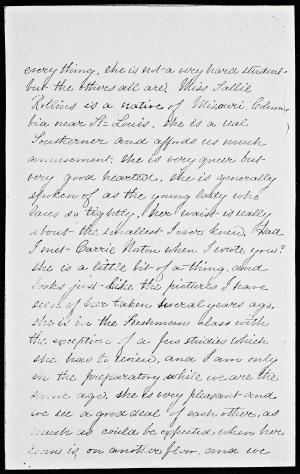 everything, she is not a very hard student
but the others all are. Miss Sallie
Rollins is a native of Missouri, Colum-
bia near St. Louis. she is a real
Southerner and affords us much
amusement. she is very queer but
very good hearted. she is generally
spoken of as the young lady who
laces so tightly, her waist is really
about the smallest I ever knew. Had
I met Carrie Norton when I wrote you?
she is a little bit of a thing, and
looks just like the pictures I have
seen of her taken several years ago.
she is in the Freshman class with
the exception of a few studies which
she has to review, and I am only
in the preparatory while we are the
same age. she is very pleasant and
we see a good deal of each other, as
much as could be expected when her
room is on another floor, and we